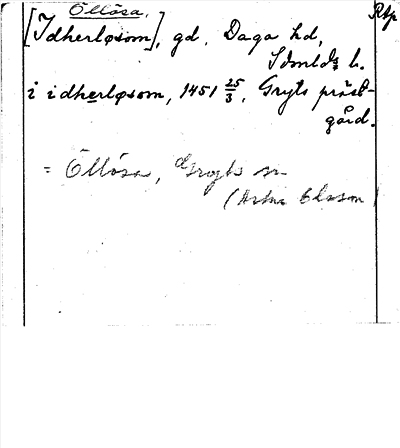 Öllösa.
[Idherløsom], gd, Daga hd,
Sdmlds l.
i idherløsom, 1451 25/3, Gryts präst-
gård.
= Öllösa, Gryts sn
(Artur Elason)
Rep